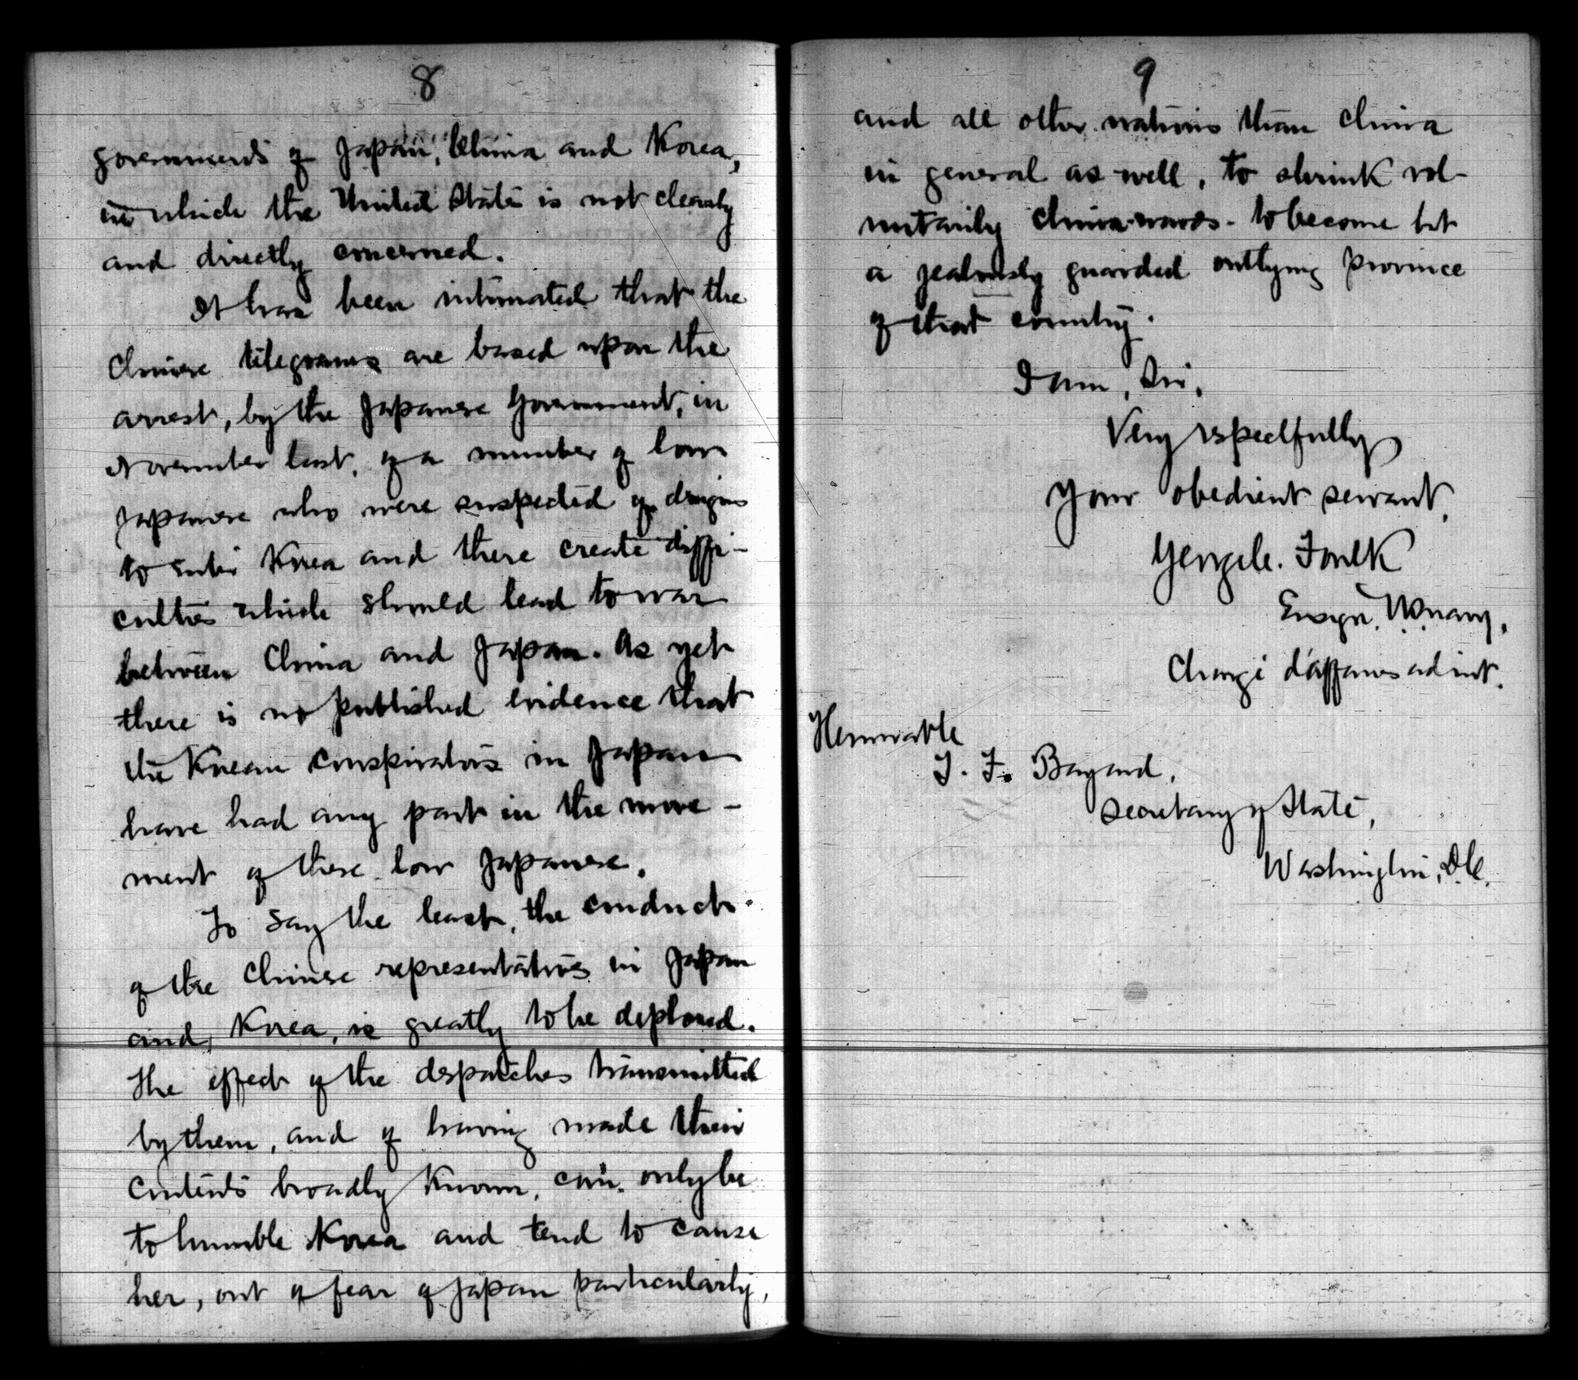 8
governments of Japan, China and Korea,
in which the United States is not clearly
and directly concerned.
It has been intimated that the
Chinese telegrams are based upon the
arrest, by the Japanese Government, in
November last, of a number of low
Japanese who were suspected of designs
to enter Korea and there create diffi-
culties which should lead to war
between China and Japan. As yet
there is no published evidence that
the Korean conspirators in Japan
have had any part in the move-
ment of these low Japanese.
To say the least, the conduct
of the Chinese representatives in Japan
and Korea, is greatly to be deplored.
The effect of the despatches transmitted
by them, and of having made their
contents broadly known, can only be
to humble Korea and tend to cause
her, out of fear of Japan particularly,
9
and all other nations than China
in general as well, to shrink vol-
untarily China-wards - to become but
a jealously guarded outlying province
of that country.
I am, Sir,
Very respectfully
Your obedient servant,
George C. Foulk
Ensign, U.S. Navy,
Chargé d'affaires ad int.
Honorable
T. F. Bayard,
Secretary of State,
Washington, D.C.